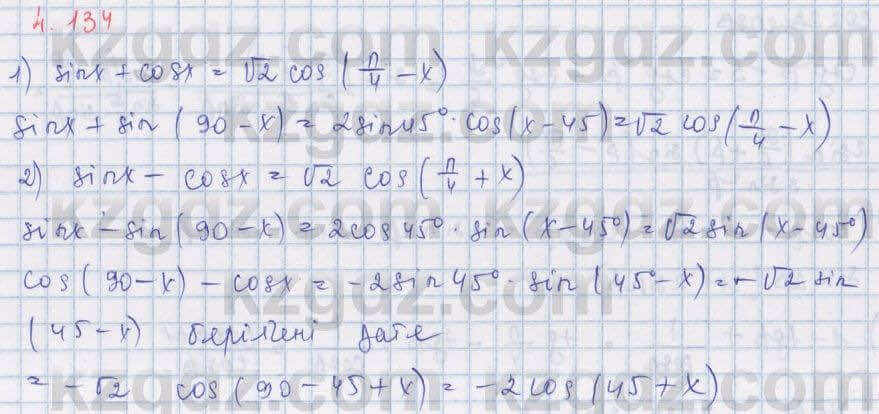 4.134
1) sinx + cosx = √2 cos (π/4 - x)
sinx + sin (90 - x) = 2sin45° · cos(x - 45) = √2 cos(π/4 - x)
2) sinx - cosx = √2 cos(π/4 + x)
sinx - sin(90 - x) = 2cos45° · sin(x - 45°) = √2 sin(x - 45°)
cos(90 - x) - cosx = -2sin45° · sin(45° - x) = -√2 sin
(45 - x) берілгені қате
= -√2 cos(90 - 45 + x) = -2cos(45 + x)
kzgdz.com